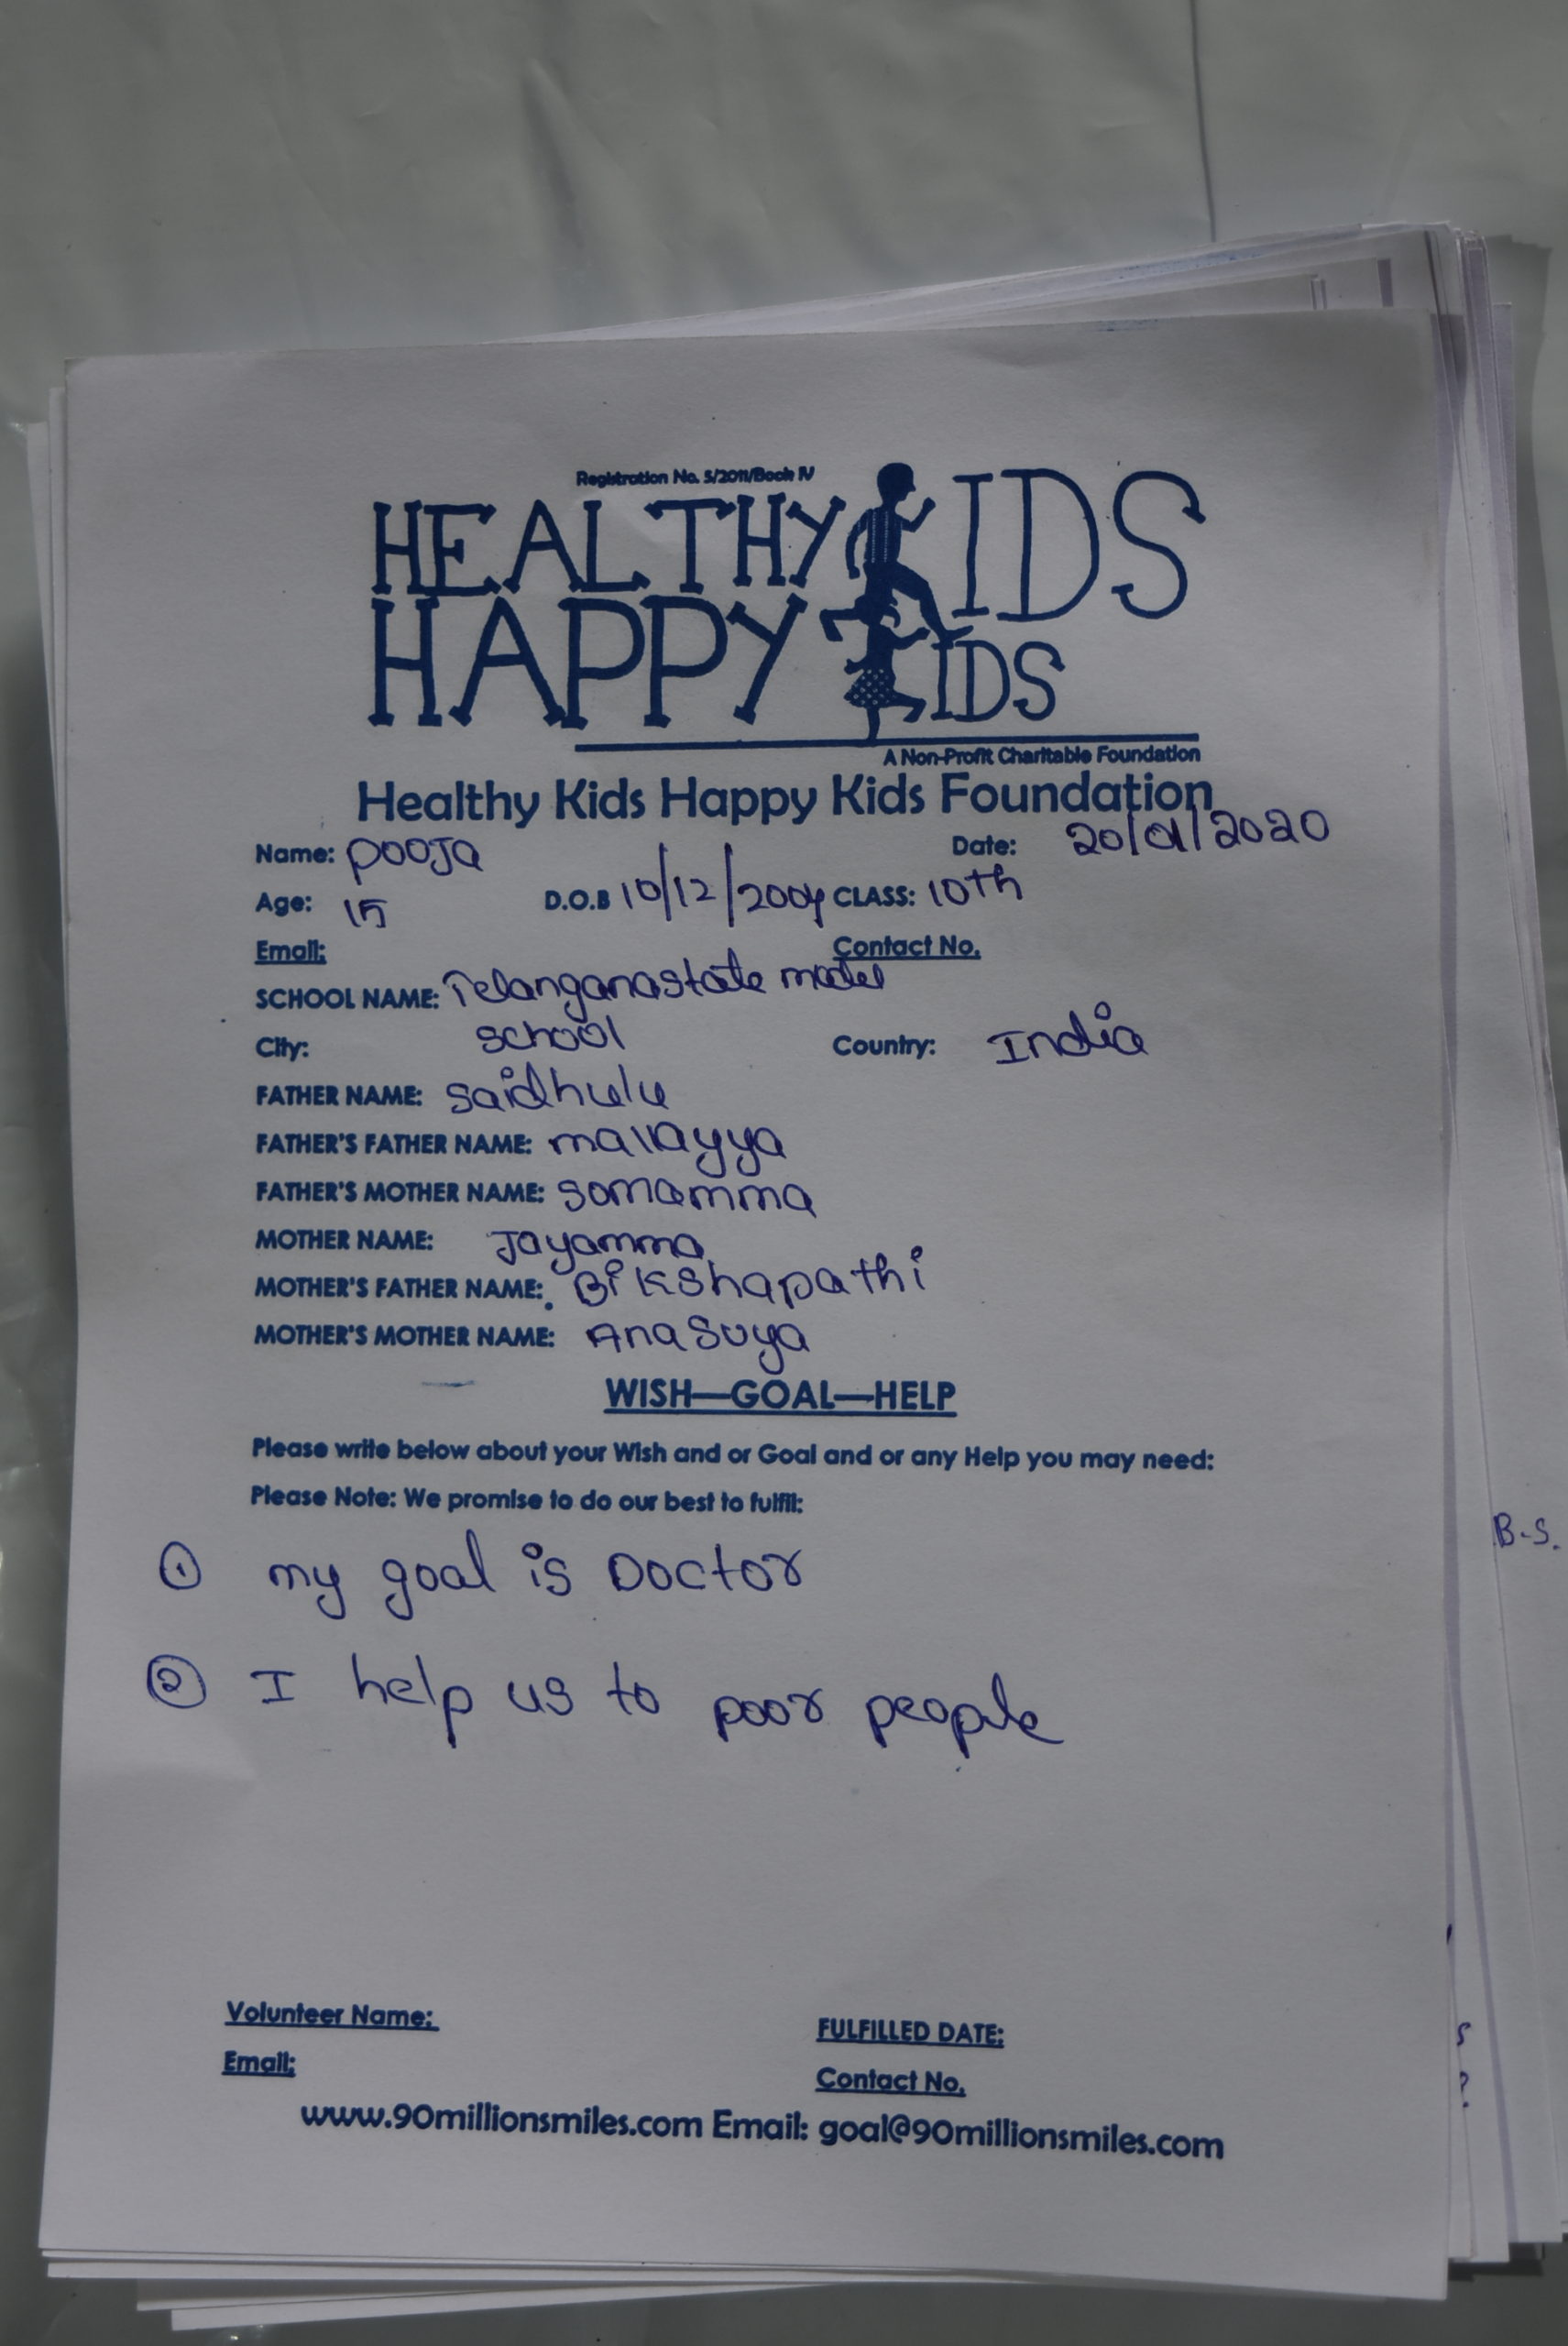 Registration No. 5/2011/Book IV
HEALTHY KIDS
HAPPY KIDS
A Non-Profit Charitable Foundation
Healthy Kids Happy Kids Foundation
Name: POOJA Date: 20/01/2020
Age: 15 D.O.B 10/12/2004 CLASS: 10th
Email: Contact No.
SCHOOL NAME: Telanganastate model
City: school Country: India
FATHER NAME: saidhulu
FATHER'S FATHER NAME: mallayya
FATHER'S MOTHER NAME: somamma
MOTHER NAME: Jayamma
MOTHER'S FATHER NAME: Bikshapathi
MOTHER'S MOTHER NAME: Anasuya
WISH—GOAL—HELP
Please write below about your Wish and or Goal and or any Help you may need:
Please Note: We promise to do our best to fulfil:
① my goal is Doctor
② I help us to poor people
B-S.
Volunteer Name: FULFILLED DATE:
Email: Contact No.
www.90millionsmiles.com Email: goal@90millionsmiles.com